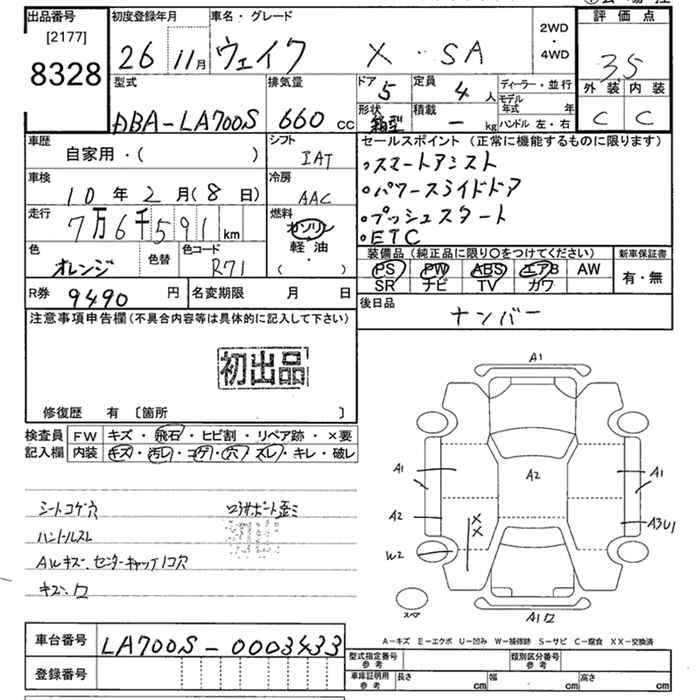 出品番号
[2177]
8328
初度登録年月
26 11月
車名・グレード
ウェイク X・SA
2WD
・
4WD
評価点
3.5
外装 内装
C C
型式
DBA-LA700S
排気量
660 cc
ドア 5
定員 4 人
形状 箱型
積載 - kg
ディーラー・並行
モデル年式 年
ハンドル 左・右
車歴
自家用・( )
シフト
IAT
車検
10年2月(8日)
冷房
AAC
走行
7万6千591km
燃料
ガソリン
軽油
( ・ )
色
オレンジ
色替
色コード
R71
セールスポイント (正常に機能するものに限ります)
・スマートアシスト
・パワースライドドア
・プッシュスタート
・ETC
装備品 (純正品に限り○をつけてください)
新車保証書
PS PW ABS エアB AW
SR ナビ TV カワ
有・無
R券 9490 円
名変期限 月 日
後日品
ナンバー
注意事項申告欄 (不具合内容等は具体的に記入して下さい)
初出品
修復歴 有 〔箇所 〕
検査員
記入欄
FW キズ・飛石・ヒビ割・リペア跡・×要
内装 キズ・汚レ・コゲ・穴・スレ・キレ・破レ
シートコゲ穴
ハンドルスレ
AWキズ、センターキャップ1コ穴
キズ、凹
A1
A1
A2
A1
A2
A3U1
W2
X
X
スペア
A1凹
A-キズ E-エクボ U-凹み W-補修跡 S-サビ C-腐食 XX-交換済
車台番号
LA700S-0003433
登録番号
型式指定番号
参考
類別区分番号
参考
車庫証明用
参考
長さ cm 幅 cm 高さ cm